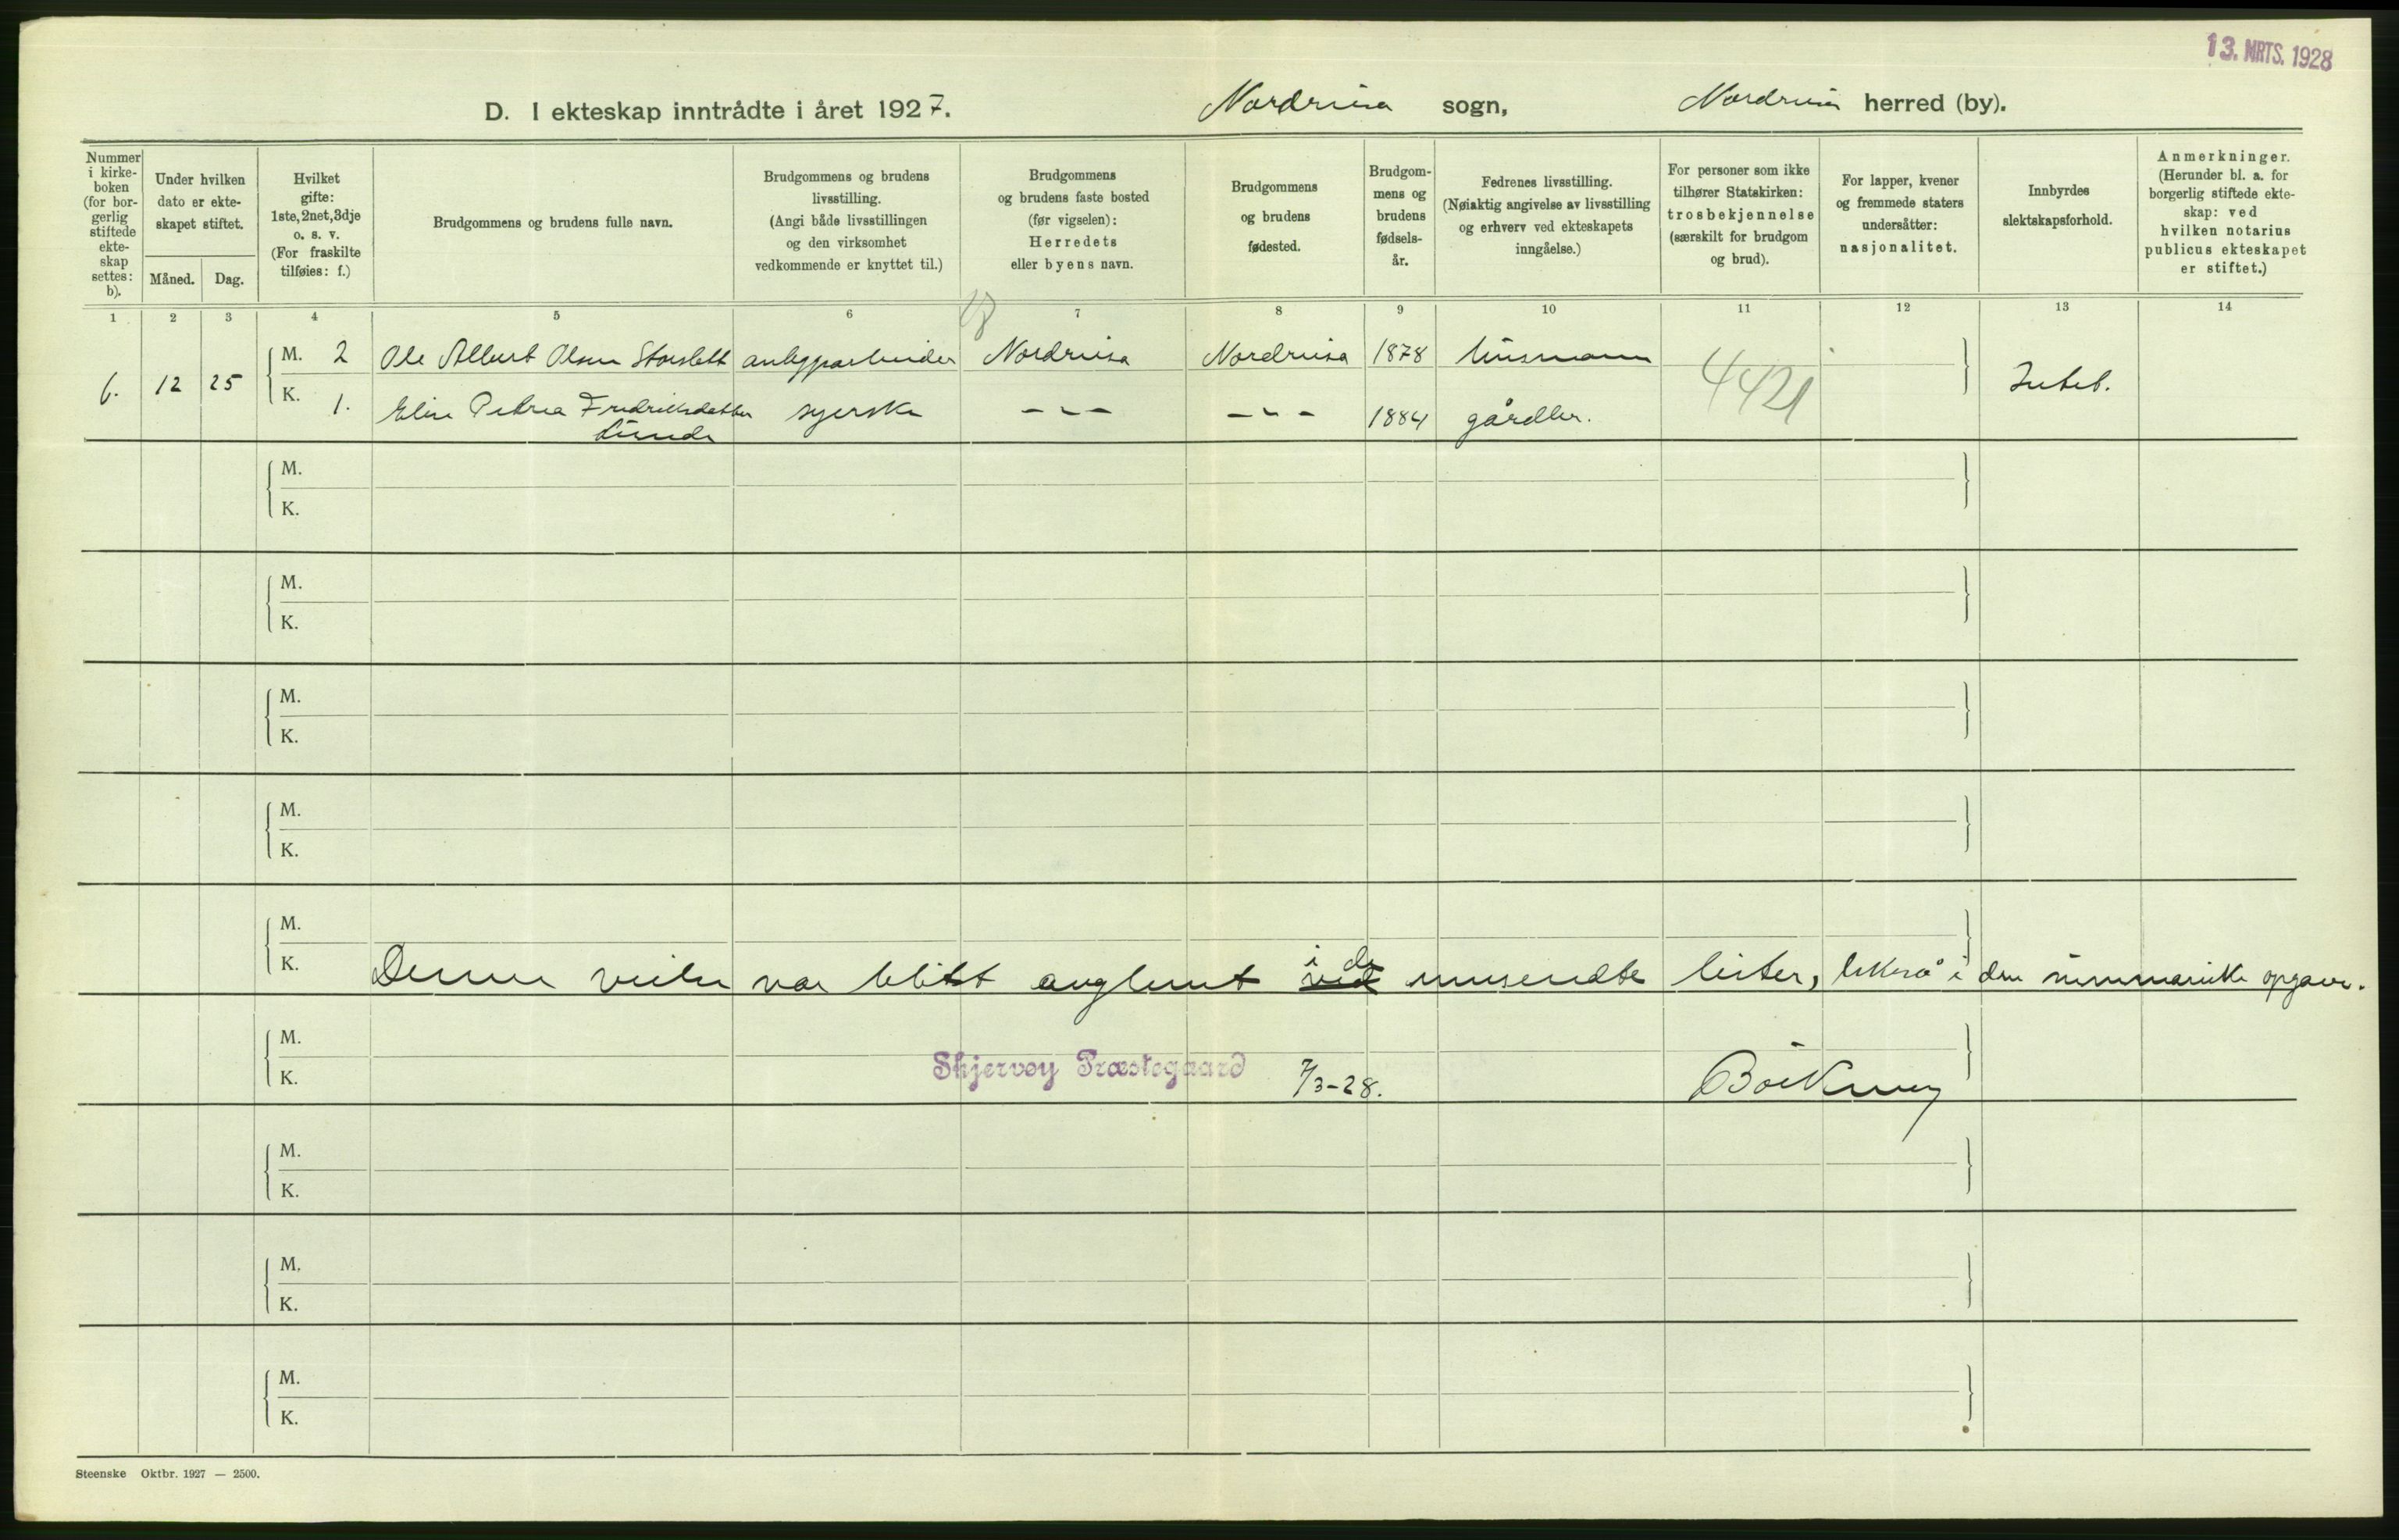 13. MRTS. 1928
D. I ekteskap inntrådte i året 1927. Nordreisa sogn, Nordreisa herred (by).
Nummer i kirke-boken (for bor-gerlig stiftede ekte-skap settes: b).
Under hvilken dato er ekte-skapet stiftet.
Måned. Dag.
Hvilket gifte: 1ste, 2net, 3dje o. s. v. (For fraskilte tilføies: f.)
Brudgommens og brudens fulle navn.
Brudgommens og brudens livsstilling. (Angi både livsstillingen og den virksomhet vedkommende er knyttet til.)
Brudgommens og brudens faste bosted (før vigselen): Herredets eller byens navn.
Brudgommens og brudens fødested.
Brudgom-mens og brudens fødsels-år.
Fedrenes livsstilling. (Nøiaktig angivelse av livsstilling og erhverv ved ekteskapets inngåelse.)
For personer som ikke tilhører Statskirken: trosbekjennelse (særskilt for brudgom og brud).
For lapper, kvener og fremmede staters undersåtter: nasjonalitet.
Innbyrdes slektskapsforhold.
Anmerkninger. (Herunder bl. a. for borgerlig stiftede ekte-skap: ved hvilken notarius publicus ekteskapet er stiftet.)
1 2 3 4 5 6 7 8 9 10 11 12 13 14
6. 12 25 M. 2 Ole Albert Olsen Storslett anleggsarbeider Nordreisa Nordreisa 1878 husmann 4421 Intet.
K. 1. Elise Petrea Fredriksdatter Lunde syerske - - - - - - 1884 gårdbr.
M.
K.
M.
K.
M.
K.
M.
K.
M.
K. Denne vielse var blitt avglemt i de innsendte lister, likeså i den summariske opgave.
M.
K. Skjervøy Præstegaard 7/3-28.
M.
K.
M.
K.
M.
K.
Steenske Oktbr. 1927 — 2500.